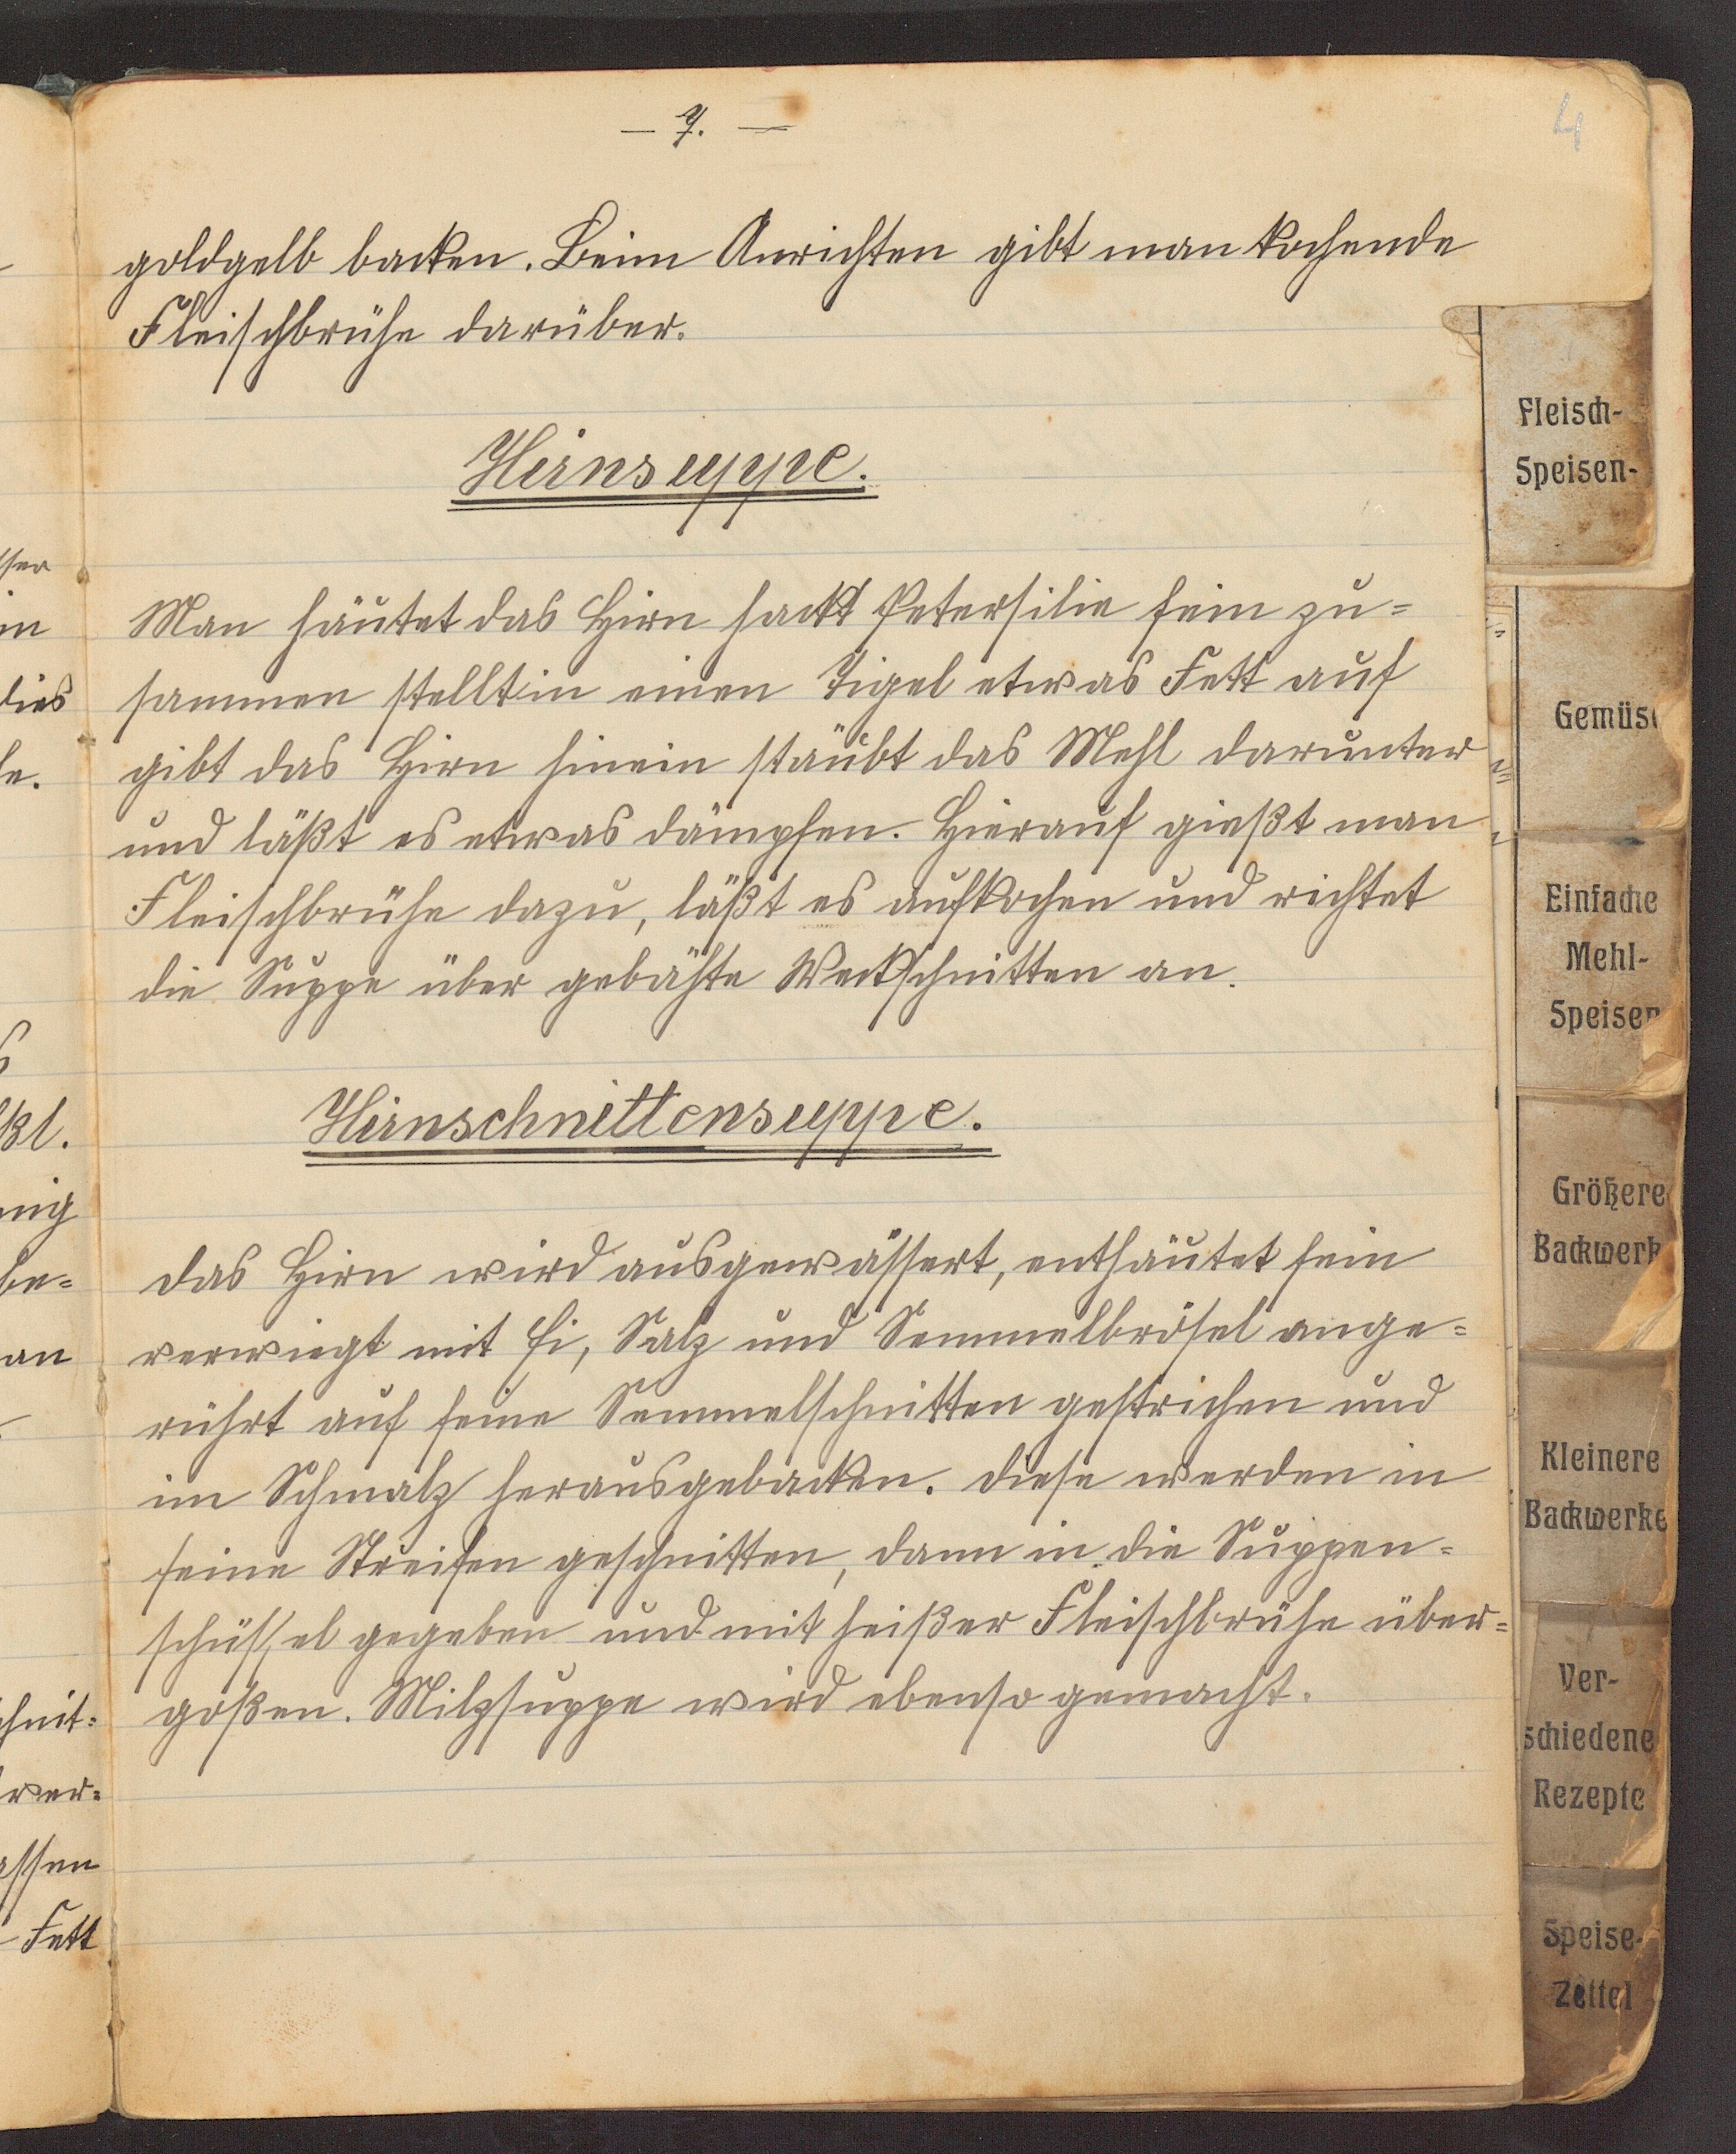 — 7. —
4
goldgelb backen. Beim Anrichten gibt man kochende
Fleischbrühe darüber.
Hirnsuppe.
Man häutet das Hirn hackt Petersilie fein zu=
sammen stellt in einen Tigel etwas Fett auf
gibt das Hirn hinein stäubt das Mehl darunter
und läßt es etwas dämpfen. Hierauf gießt man
Fleischbrühe dazu, läßt es aufkochen und richtet
die Suppe über gebähte Weckschnitten an.
Hirnschnittensuppe.
Das Hirn wird ausgewässert, enthäutet fein
verwiegt mit Ei, Salz und Semmelbrösel ange=
rührt auf feine Semmelschnitten gestrichen und
im Schmalz herausgebacken. Diese werden in
feine Streifen geschnitten, dann in die Suppen=
schüssel gegeben und mit heißer Fleischbrühe über=
goßen. Milzsuppe wird ebenso gemacht.
Fleisch-
Speisen-
Gemüse
Einfache
Mehl-
Speisen
Größere
Backwerk
Kleinere
Backwerke
Ver-
schiedene
Rezepte
Speise-
Zettel
dies
be=
an
ver=
Fett